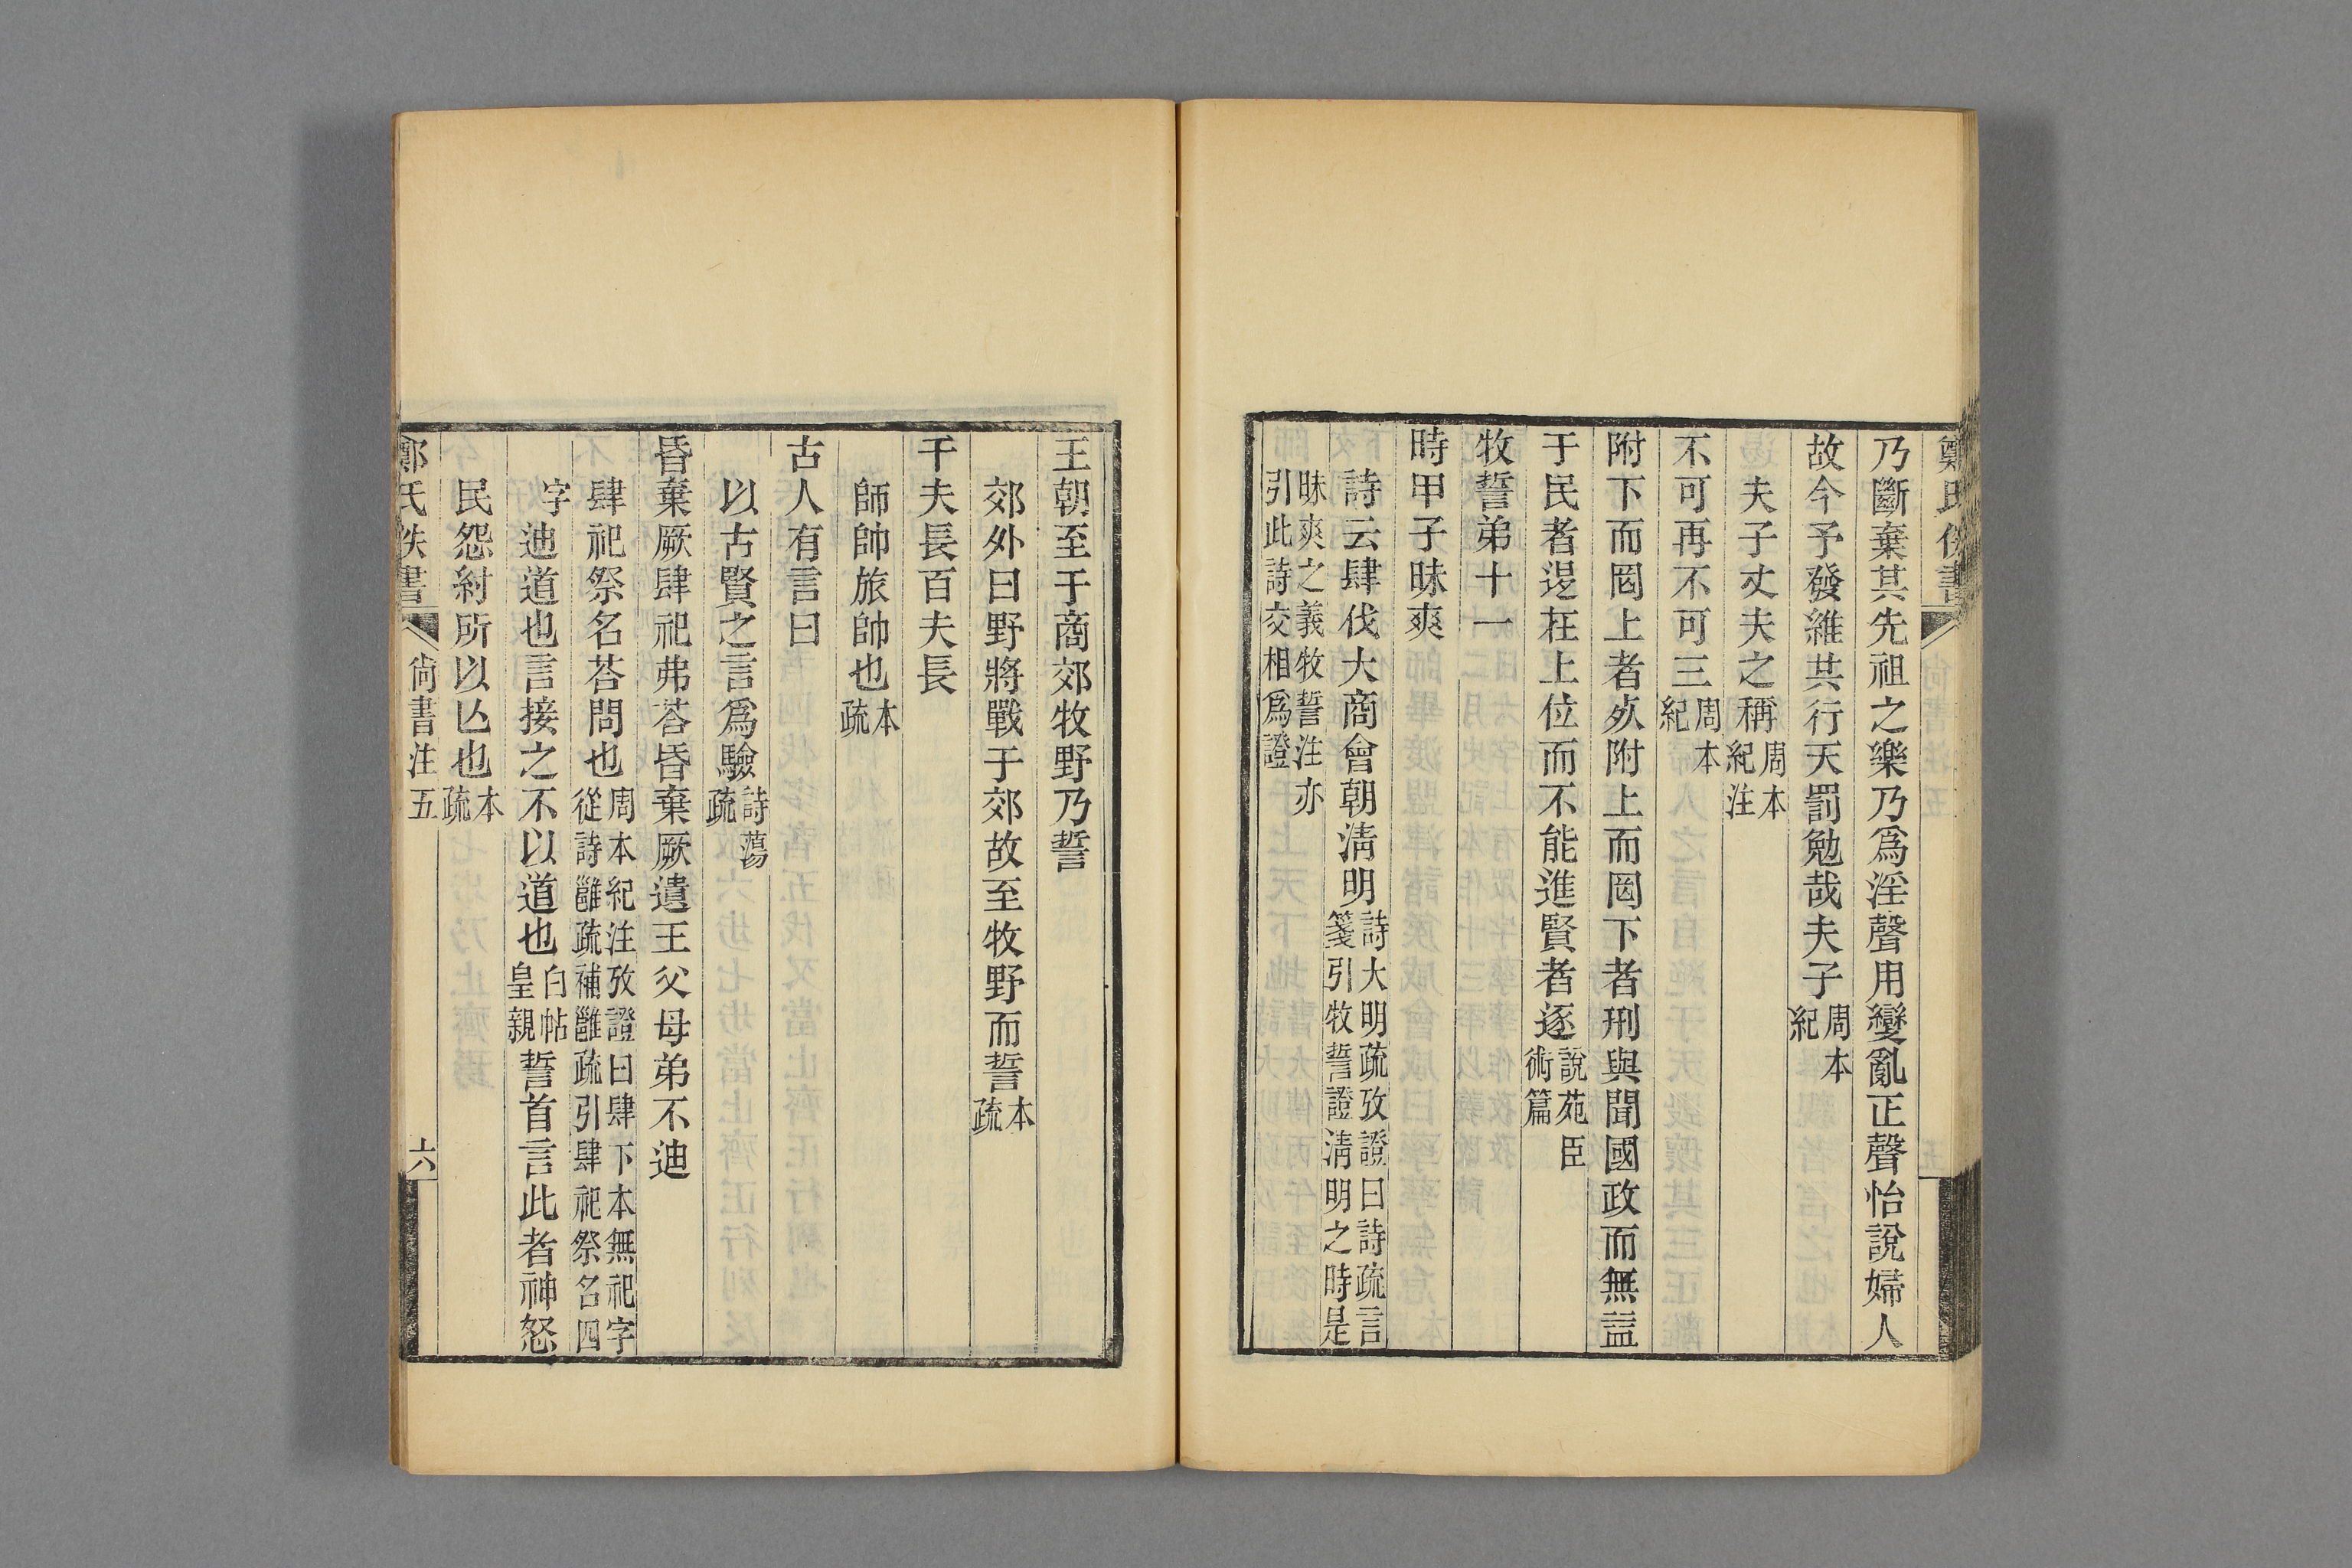 乃斷棄其先祖之樂乃爲淫聲用變亂正聲怡說婦人
故今予發維共行天罰勉哉夫子周本紀
夫子丈夫之稱周本紀注
不可再不可三周本紀
附下而罔上者𣦸附上而罔下者刑與聞國政而無益
于民者退在上位而不能進賢者逐說苑臣術篇
牧誓弟十一
時甲子昧爽
詩云肆伐大商會朝淸明詩大明疏攷證曰詩疏言箋引牧誓證淸明之時是
昧爽之義牧誓注亦引此詩交相爲證
王朝至于商郊牧野乃誓
郊外曰野將戰于郊故至牧野而誓本疏
千夫長百夫長
師帥旅帥也本疏
古人有言曰
以古賢之言爲驗詩蕩疏
昏棄厥肆祀弗荅昏棄厥遺王父母弟不迪
肆祀祭名荅問也周本紀注攷證曰肆下本無祀字從詩雝疏補雝疏引肆祀祭名四
字迪道也言接之不以道也白帖皇親誓首言此者神怒
民怨紂所以亾也本疏
鄭氏佚書
尙書注五
六